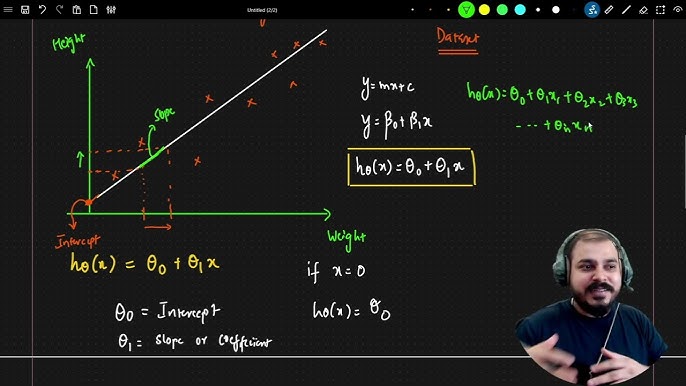 Untitled (2/2)
Height
Dataset
Slope
y=mx+c
hθ(x)=θ0+θ1x1+θ2x2+θ3x3
--- + θnxn
y=β0+β1x
hθ(x)=θ0+θ1x
Intercept
Weight
hθ(x) = θ0 + θ1x
if x=0
θ0 = Intercept
hθ(x)= θ0
θ1 = slope or coefficient